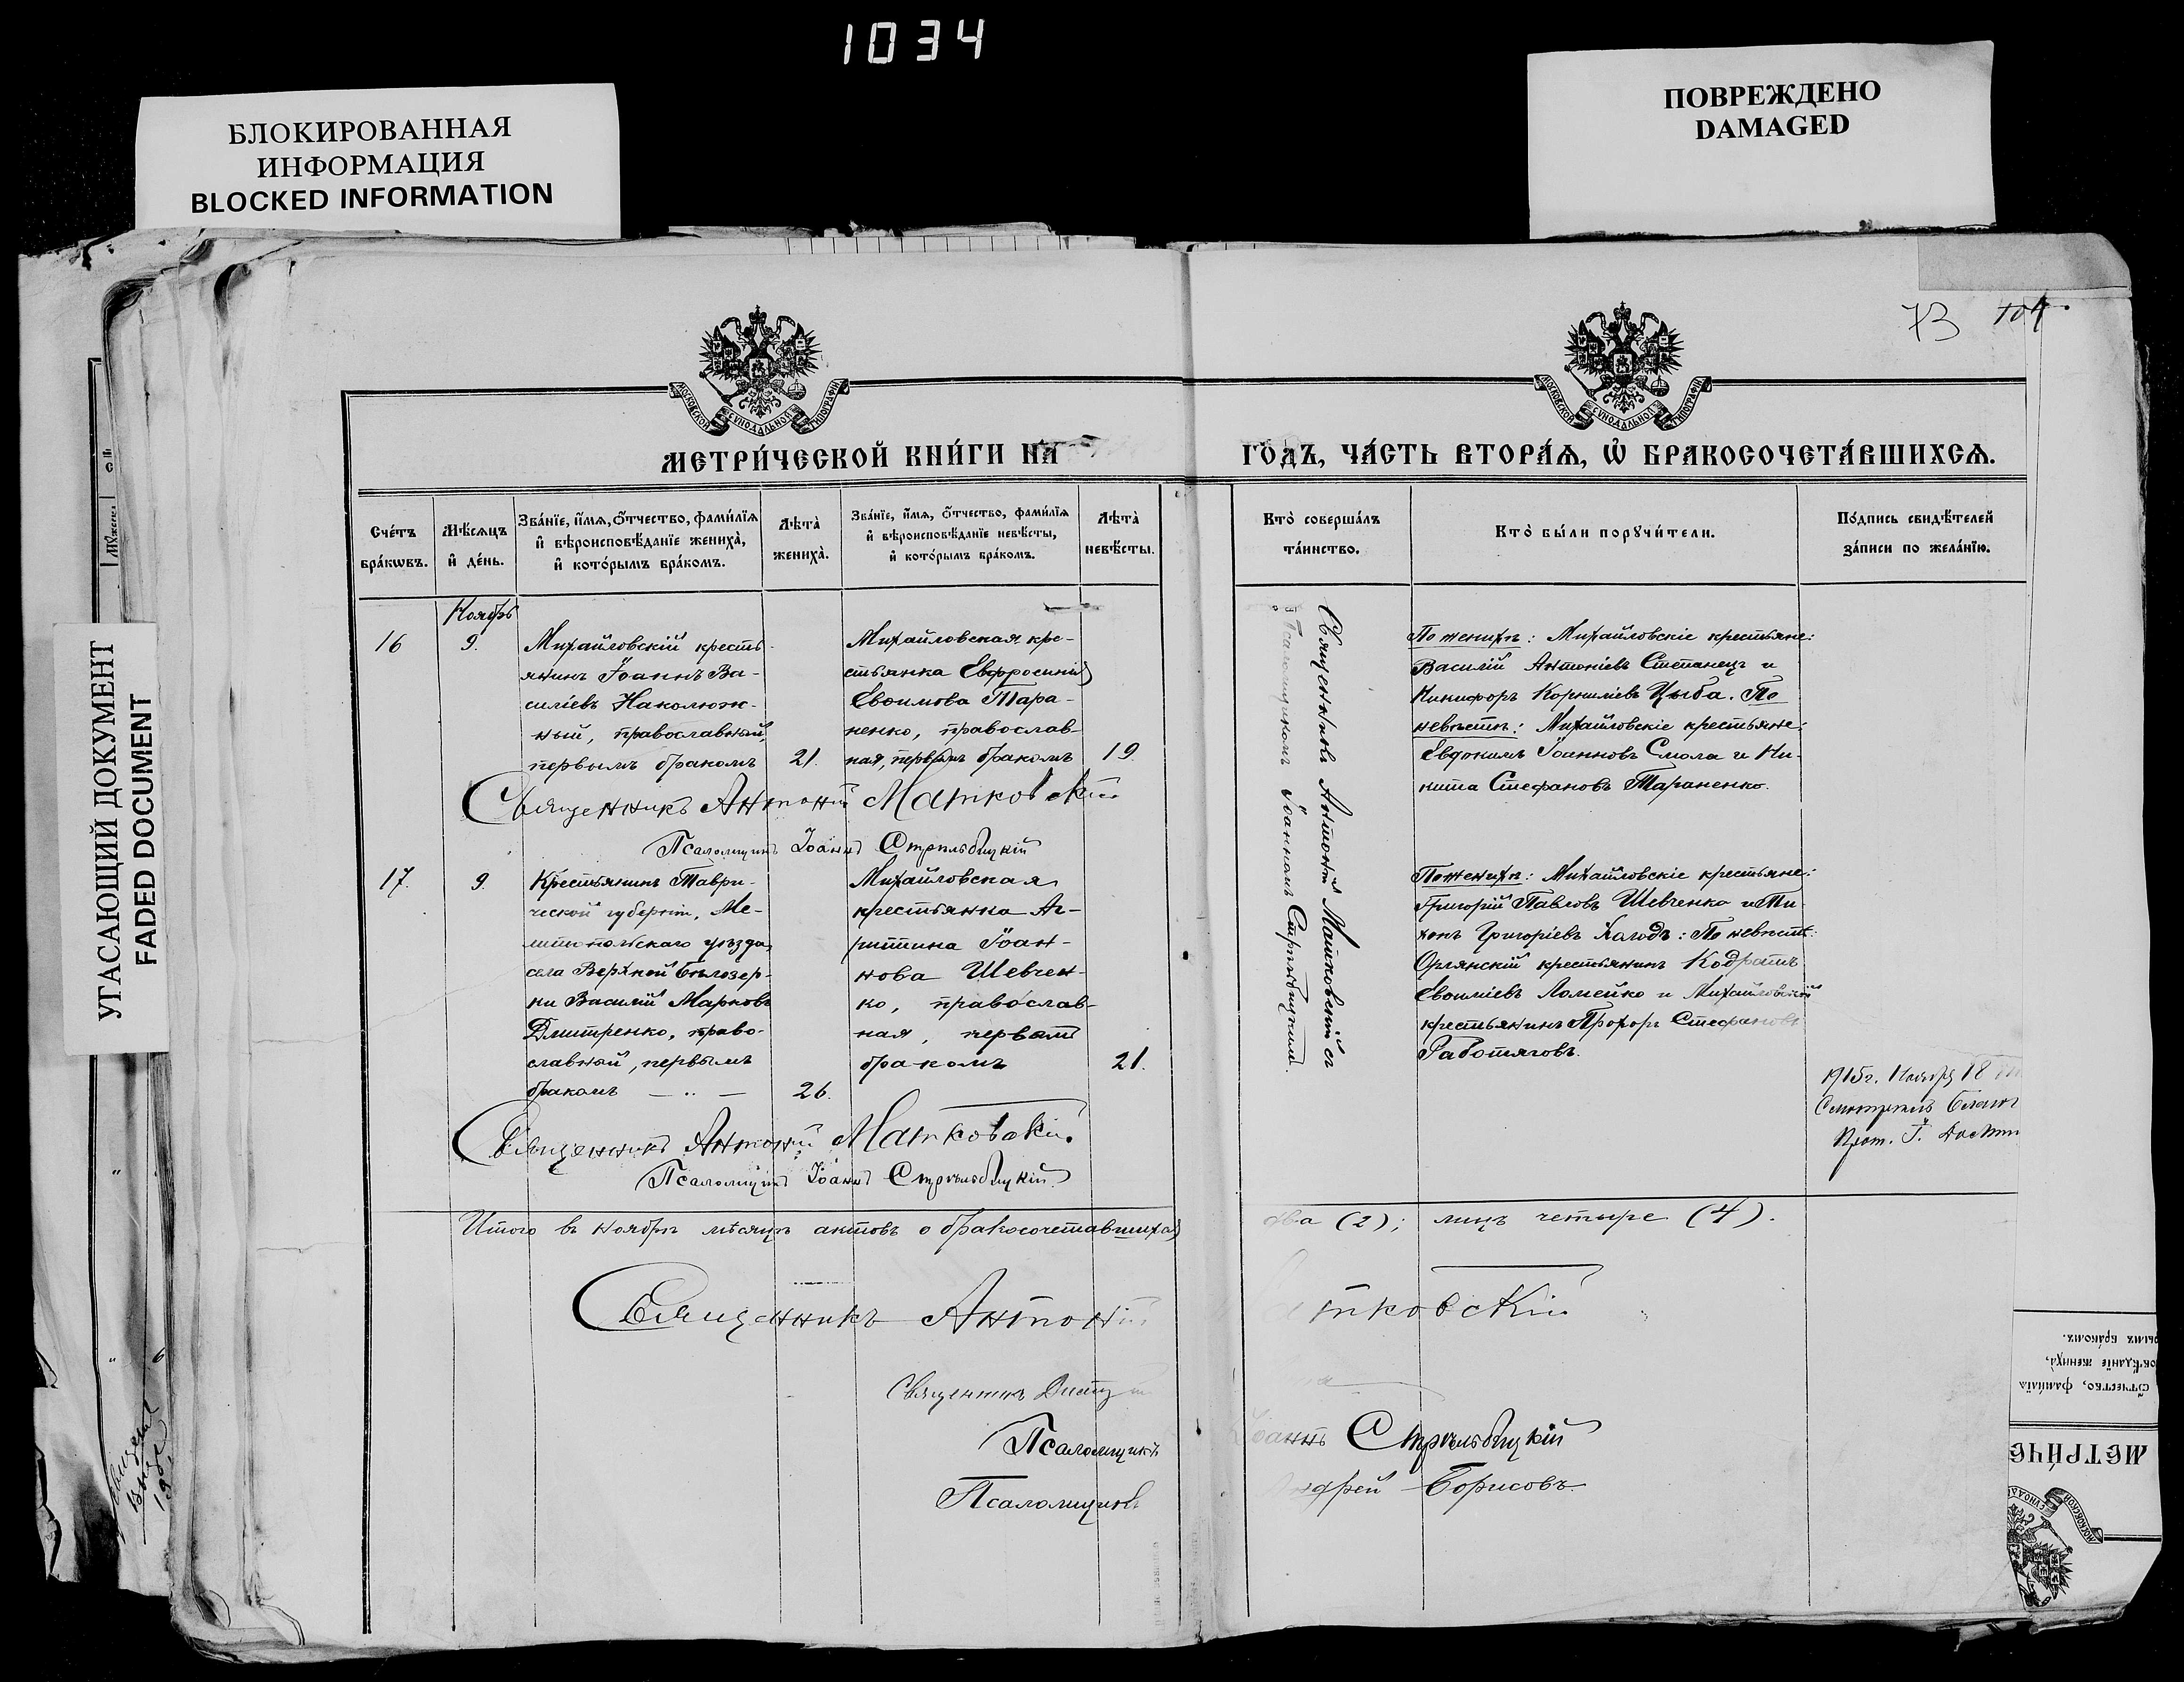 1034
БЛОКИРОВАННАЯ
ИНФОРМАЦИЯ
BLOCKED INFORMATION
ПОВРЕЖДЕНО
DAMAGED
УГАСАЮЩИЙ ДОКУМЕНТ
FADED DOCUMENT
73 104
МОСКОВСКОЙ СѴНОДАЛЬНОЙ ТИПОГРАФІИ
МОСКОВСКОЙ СѴНОДАЛЬНОЙ ТИПОГРАФІИ
МЕТРИ́ЧЕСКОЙ КНИ́ГИ НА
ГО́ДЪ, ЧА́СТЬ ВТОРА́Я, Ѡ҆ БРАКОСОЧЕТА́ВШИХСЯ.
Сче́тъ
бра́кѡвъ.
Мѣ́сяцъ
и҆ де́нь.
Зва́нїе, и҆́мя, ѻ҆́тчество, фами́лїя
и҆ вѣроисповѣ́данїе жениха̀,
и҆ кото́рымъ бра́комъ.
Лѣта̀
жениха̀.
Зва́нїе, и҆́мя, ѻ҆́тчество, фами́лїя
и҆ вѣроисповѣ́данїе невѣ́сты,
и҆ кото́рымъ бра́комъ.
Лѣта̀
невѣ́сты.
Кто̀ соверша́лъ
та́инство.
Кто̀ бы́ли порꙋчи́тели.
По́дпись свидѣ́телей
за́писи по жела́нїю.
Ноябрь
16
9.
Михайловскій кресть-
янинъ Іоаннъ Ва-
силіевъ Наколюж-
ный, православный,
первымъ бракомъ
21.
Михайловская кре-
стьянка Евфросинія
Евѳимова Тара-
ненко, православ-
ная, первымъ бракомъ
19.
Священникъ Антоній Матковскій
Псаломщикъ Іоаннъ Стрѣльбицкій
По женихѣ: Михайловскіе крестьяне:
Василій Антоніевъ Степанецъ и
Никифоръ Корниліевъ Цыба. По
невѣстѣ: Михайловскіе крестьяне:
Евдокимъ Іоанновъ Смола и Ни-
кита Стефановъ Тараненко.
Священникъ Антоній Матковскій съ
Псаломщикомъ Іоанномъ Стрѣльбицкимъ.
17.
9.
Крестьянинъ Таври-
ческой губерніи, Ме-
литопольскаго уѣзда,
села Верхней Бѣлозер-
ки Василій Марковъ
Дмитренко, право-
славный, первымъ
бракомъ
26.
Михайловская
крестьянка Аг-
риппина Іоан-
нова Шевчен-
ко, православ-
ная, первымъ
бракомъ
21.
Священникъ Антоній Матковскій.
Псаломщикъ Іоаннъ Стрѣльбицкій.
По женихѣ: Михайловскіе крестьяне:
Григорій Павловъ Шевченко и Ти-
хонъ Григоріевъ : По невѣстѣ:
Орлянскій крестьянинъ Кодратъ
Евѳиміевъ Ломейко и Михайловскій
крестьянинъ Прохоръ Стефановъ
Работяговъ.
1915г. Ноября 18
Прот. І.
Итого въ ноябрѣ мѣсяцѣ актовъ о бракосочетавшихся
два (2); лицъ четыре (4).
Священникъ Антоній
Матковскій
Священникъ
Псаломщикъ Іоаннъ Стрѣльбицкій
Псаломщикъ Андрей Борисовъ.
ѻ҆́тчество, фами́лїя
МЕТРИ́ЧЕ